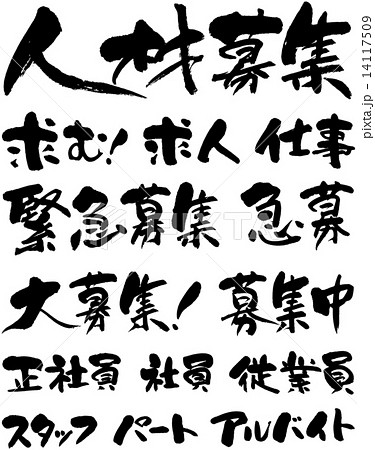 人材募集
求む! 求人 仕事
緊急募集 急募
大募集! 募集中
正社員 社員 従業員
スタッフ パート アルバイト
PIXTA
pixta.jp - 14117509